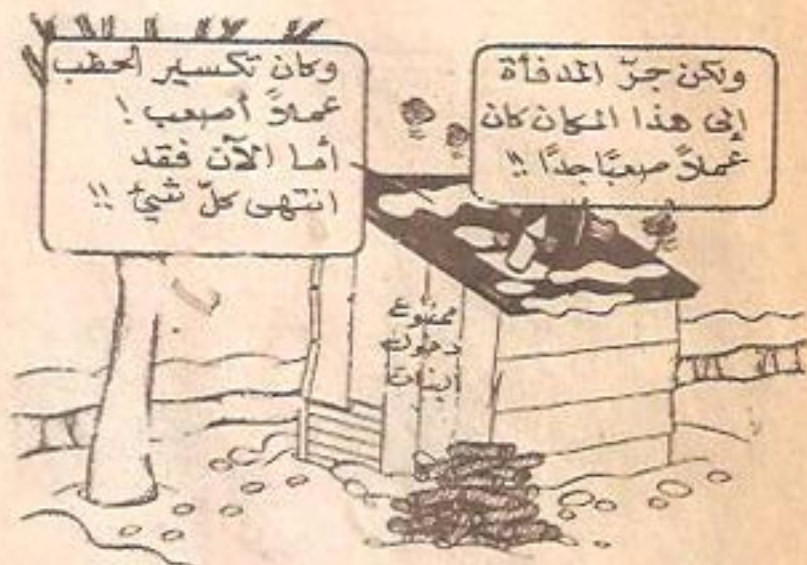 ولكن جرّ المدفأة
إلى هذا المكان كان
عملاً صعبًا جدًا !!
وكان تكسير الحطب
عملاً أصعب !
أما الآن فقد
انتهى كلّ شيئ !!
ممنوع
دخول
البنات